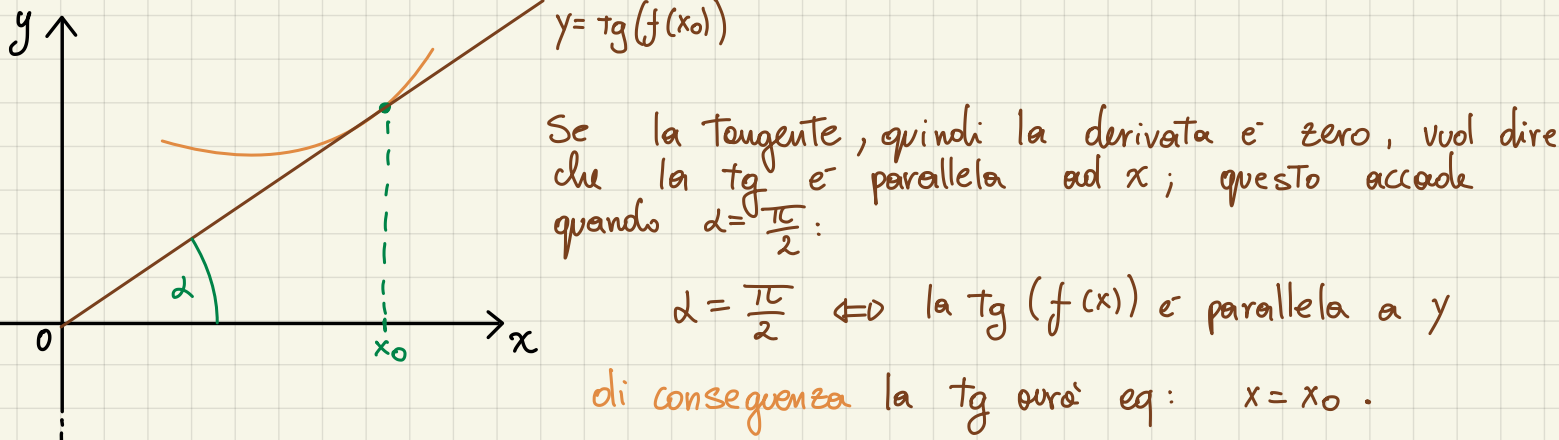 y
y= tg(f(x₀))
Se la tangente, quindi la derivata è zero, vuol dire
che la tg è parallela ad x; questo accade
quando α= π/2:
α = π/2 ⇔ la tg (f(x)) è parallela a y
di conseguenza la tg avrà eq: x = x₀.
α
0
x₀
x